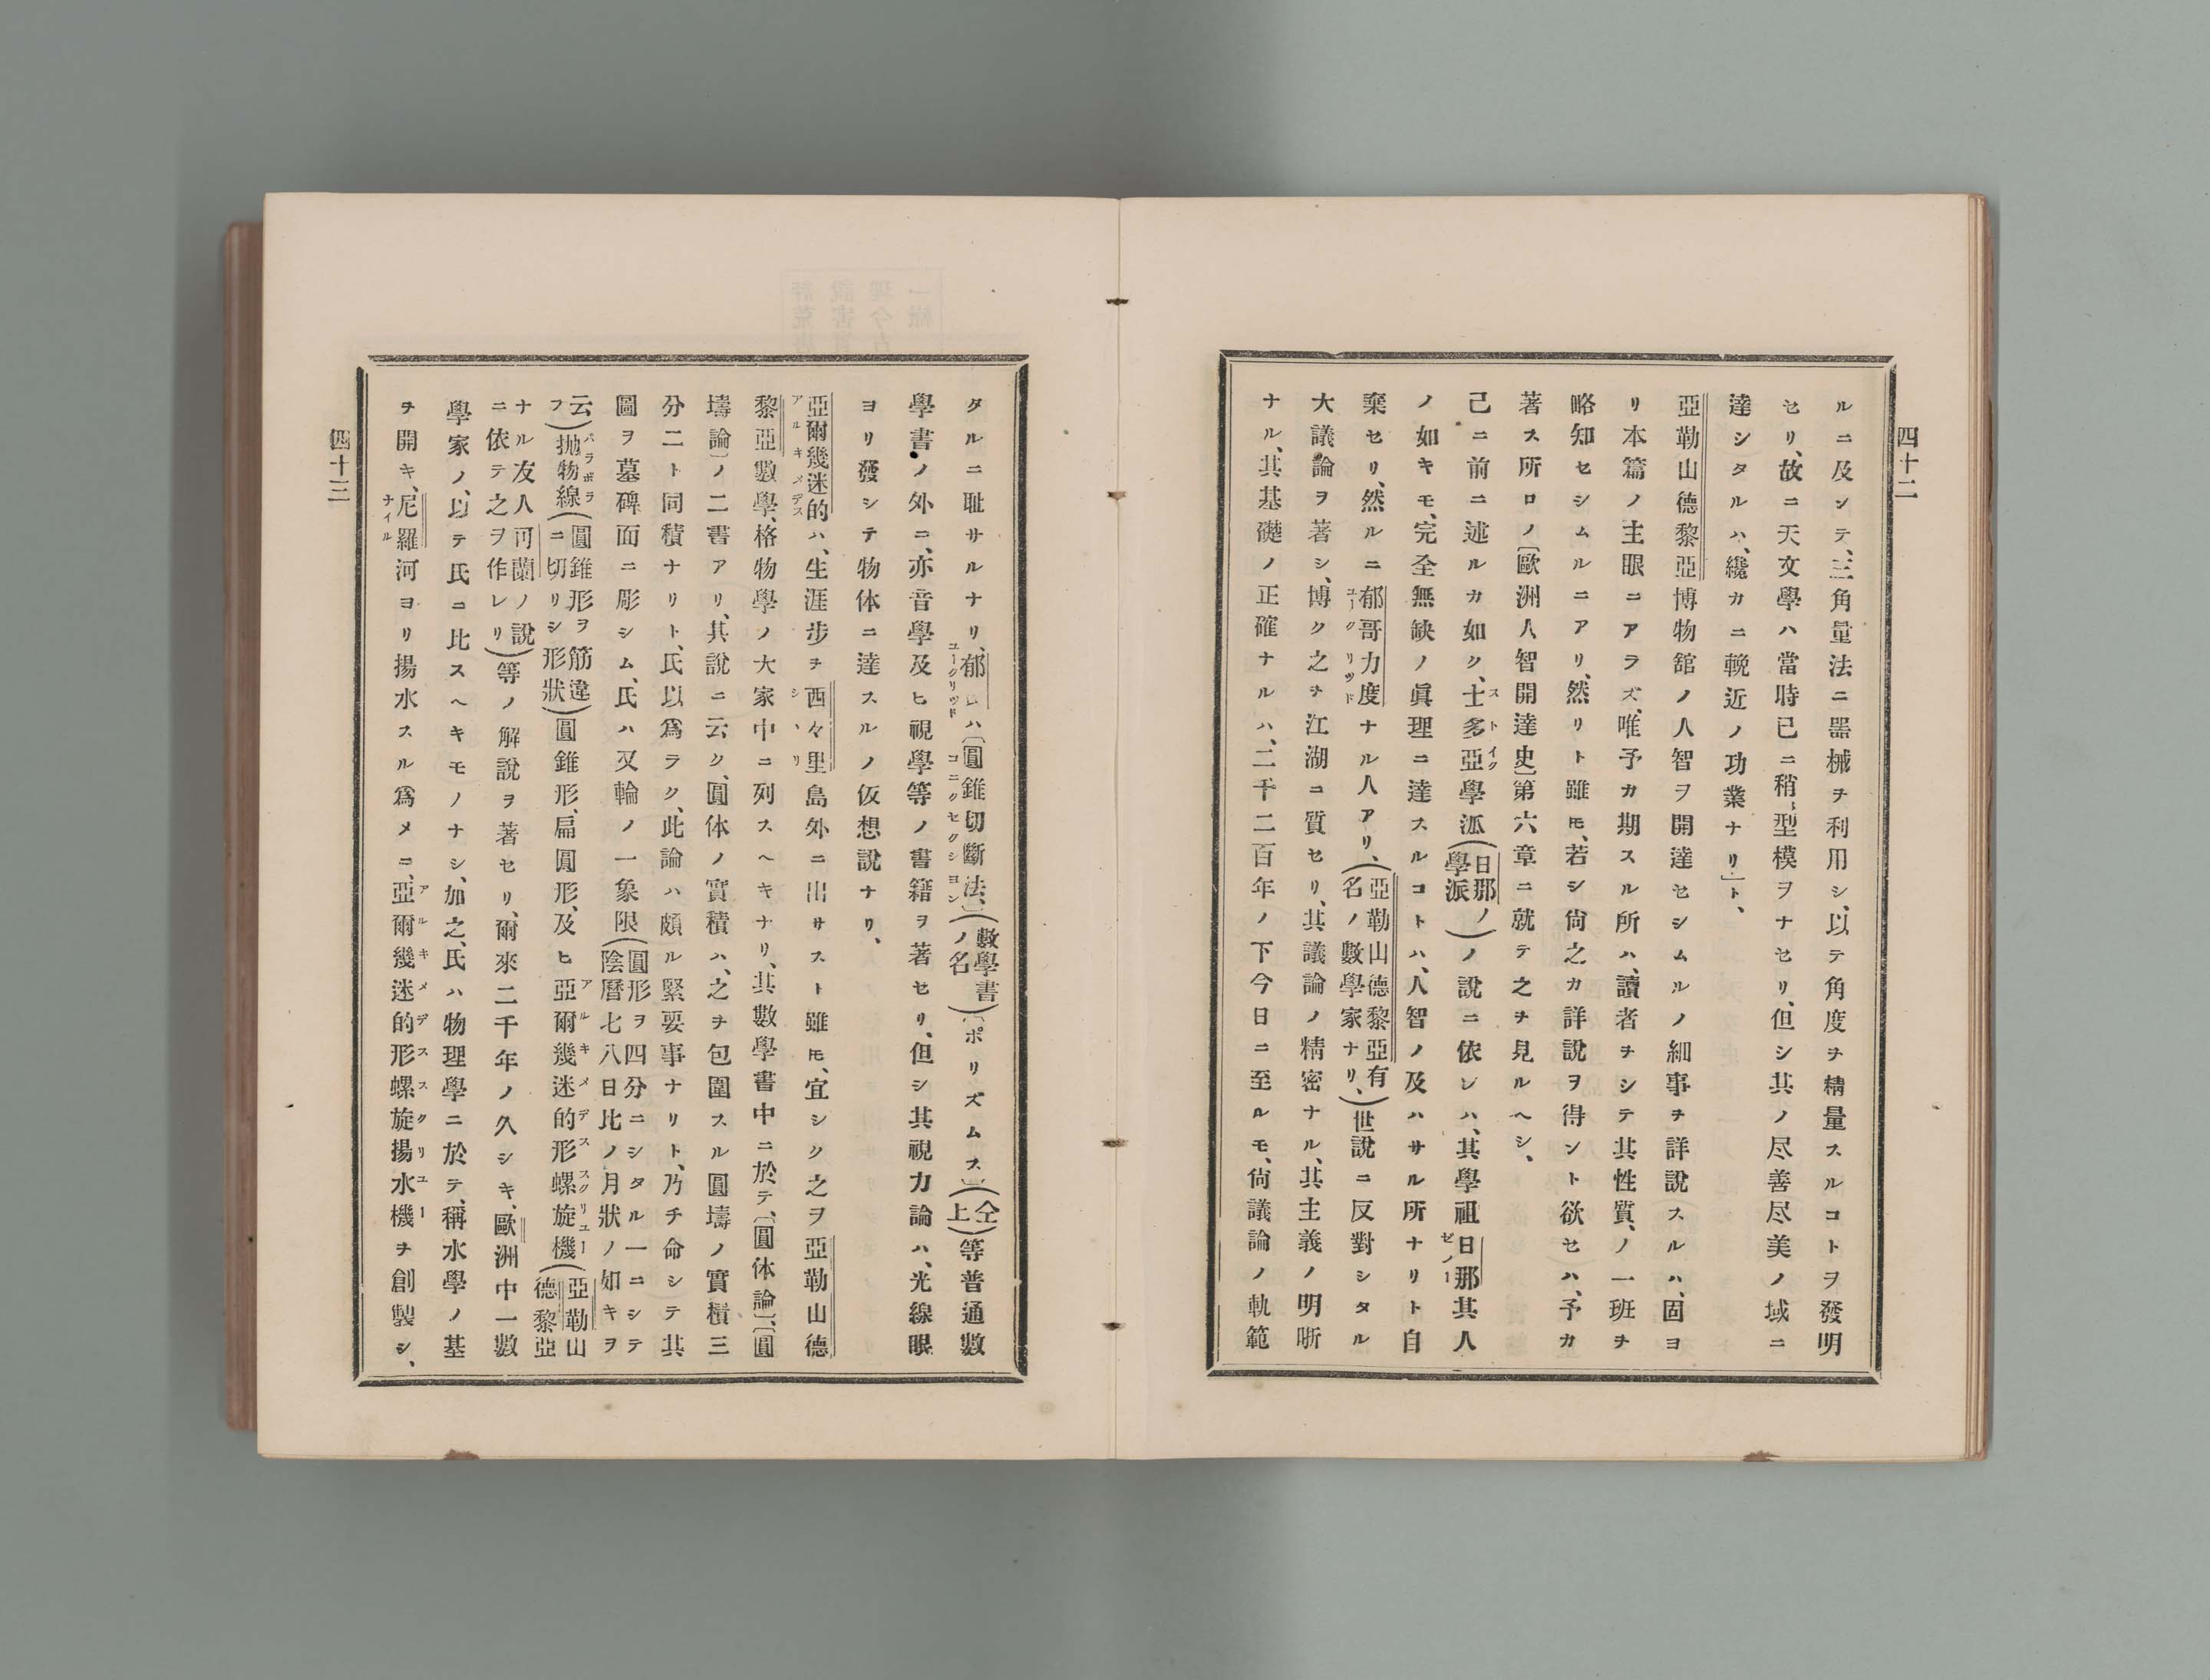 四十二
ルニ及ンテ、三角量法ニ器械ヲ利用シ、以テ角度ヲ精量スルコトヲ發明
セリ、故ニ天文學ハ當時已ニ稍型模ヲナセリ、但シ其ノ尽善尽美ノ域ニ
達シタルハ、纔カニ輓近ノ功業ナリ」ト、
亞勒山德黎亞博物舘ノ人智ヲ開達セシムルノ細事ヲ詳說スルハ、固ヨ
リ本篇ノ主眼ニアラズ、唯予カ期スル所ハ、讀者ヲシテ其性質ノ一班ヲ
略知セシムルニアリ、然リト雖𪜈、若シ尙之カ詳說ヲ得ント欲セハ、予カ
著ス所ロノ〔歐洲人智開達史〕第六章ニ就テ之ヲ見ルヘシ、
己ニ前ニ述ルカ如ク、士多亞學派(日那ノ學派)ノ說ニ依レハ、其學祖日那其人
ストイク
ゼノー
ノ如キモ、完全無缺ノ眞理ニ達スルコトハ、人智ノ及ハサル所ナリト自
棄セリ、然ルニ郁哥力度ナル人アリ、(亞勒山德黎亞有名ノ數學家ナリ、)世說ニ反對シタル
ユークリッド
大議論ヲ著シ、博ク之ヲ江湖ニ質セリ、其議論ノ精密ナル、其主義ノ明晰
ナル、其基礎ノ正確ナルハ、二千二百年ノ下今日ニ至ルモ、尙議論ノ軌範
四十三
タルニ耻サルナリ、郁ハ〔圓錐切斷法、〕(數學書ノ名)〔ポリズムス〕(仝上)等普通數
ユークリッド
コニクセクシヨン
學書ノ外ニ、亦音學及ヒ視學等ノ書籍ヲ著セリ、但シ其視力論ハ、光線眼
ヨリ發シテ物体ニ達スルノ仮想說ナリ、
亞爾幾迷的ハ、生涯步ヲ西々里島外ニ出サスト雖𪜈、宜シク之ヲ亞勒山德
アルキメデス
シヽリ
黎亞數學、格物學ノ大家中ニ列スヘキナリ、其數學書中ニ於テ、〔圓体論〕、〔圓
壔論〕ノ二書アリ、其說ニ云ク、圓体ノ實積ハ、之ヲ包圍スル圓壔ノ實積三
分二ト同積ナリト、氏以爲ラク、此論ハ頗ル緊要事ナリト、乃チ命シテ其
圖ヲ墓碑面ニ彫シム、氏ハ又輪ノ一象限(圓形ヲ四分ニシタル一ニシテ陰曆七八日比ノ月狀ノ如キヲ
云フ)拋物線(圓錐形ヲ筋違ニ切リシ形狀)圓錐形、扁圓形、及ヒ亞爾幾迷的形螺旋機(亞勒山德黎亞
パラボラ
アルキメデススクリユー
ナル友人可蘭ノ說ニ依テ之ヲ作レリ)等ノ解說ヲ著セリ、爾來二千年ノ久シキ、歐洲中一數
學家ノ、以テ氏ニ比スヘキモノナシ、加之、氏ハ物理學ニ於テ、稱水學ノ基
ヲ開キ、尼羅河ヨリ揚水スル爲メニ、亞爾幾迷的形螺旋揚水機ヲ創製シ、
ナイル
アルキメデススクリユー